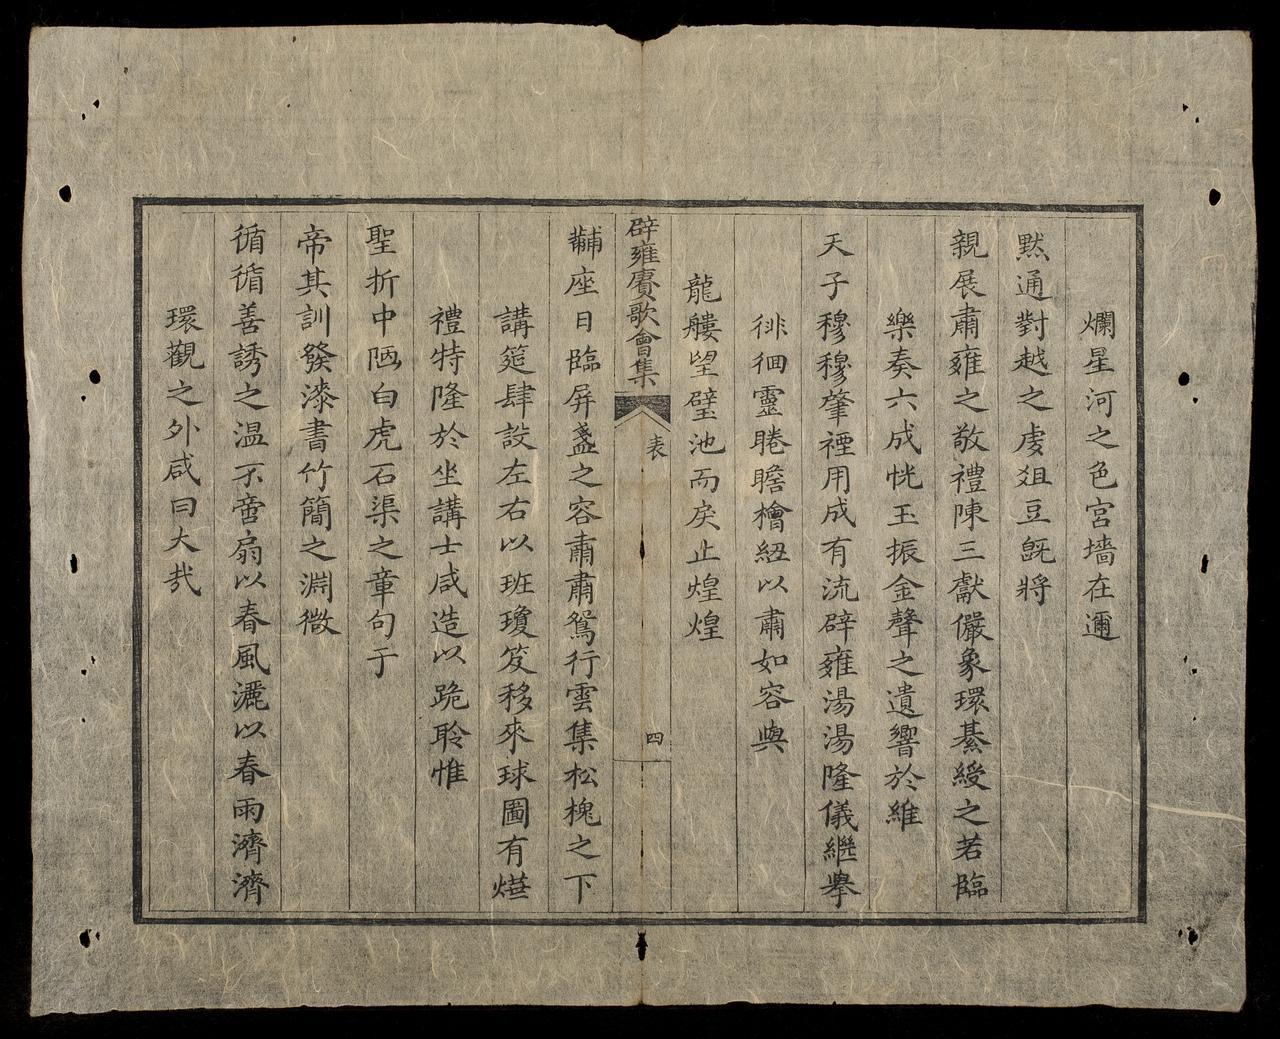 爛星河之色宮墻在邇
默通對越之虔俎豆旣將
親展肅雍之敬禮陳三獻儼象環綦綬之若臨
樂奏六成恍玉振金聲之遺響於維
天子穆穆肇禋用成有流辟雍湯湯隆儀繼擧
徘徊靈睠瞻檜紐以肅如容與
龍艛望璧池而戾止煌煌
辟雍賡歌會集
表
四
黼座日臨屛扆之容肅肅鴛行雲集松槐之下
講筵肆設左右以班瓊笈移來球圖有爀
禮特隆於坐講士咸造以跪聆惟
聖折中陋白虎石渠之章句于
帝其訓發漆書竹簡之淵微
循循善誘之溫不啻扇以春風灑以春雨濟濟
環觀之外咸曰大哉